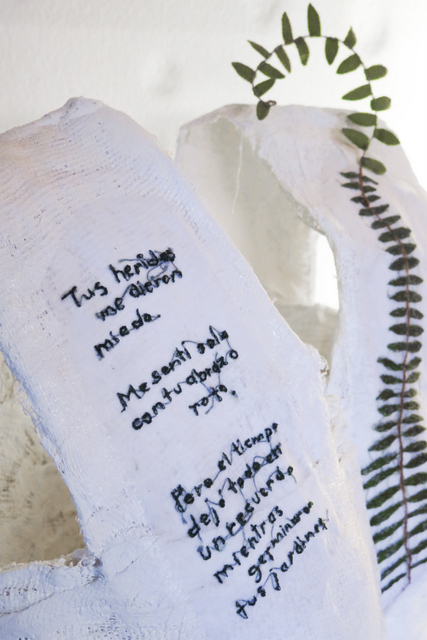 Tus heridas
me dieron
miedo.
Me sentí sola
con tu abrazo
roto.
Pero el tiempo
dejó todo en
un recuerdo,
mientras
germinaron
tus jardines.